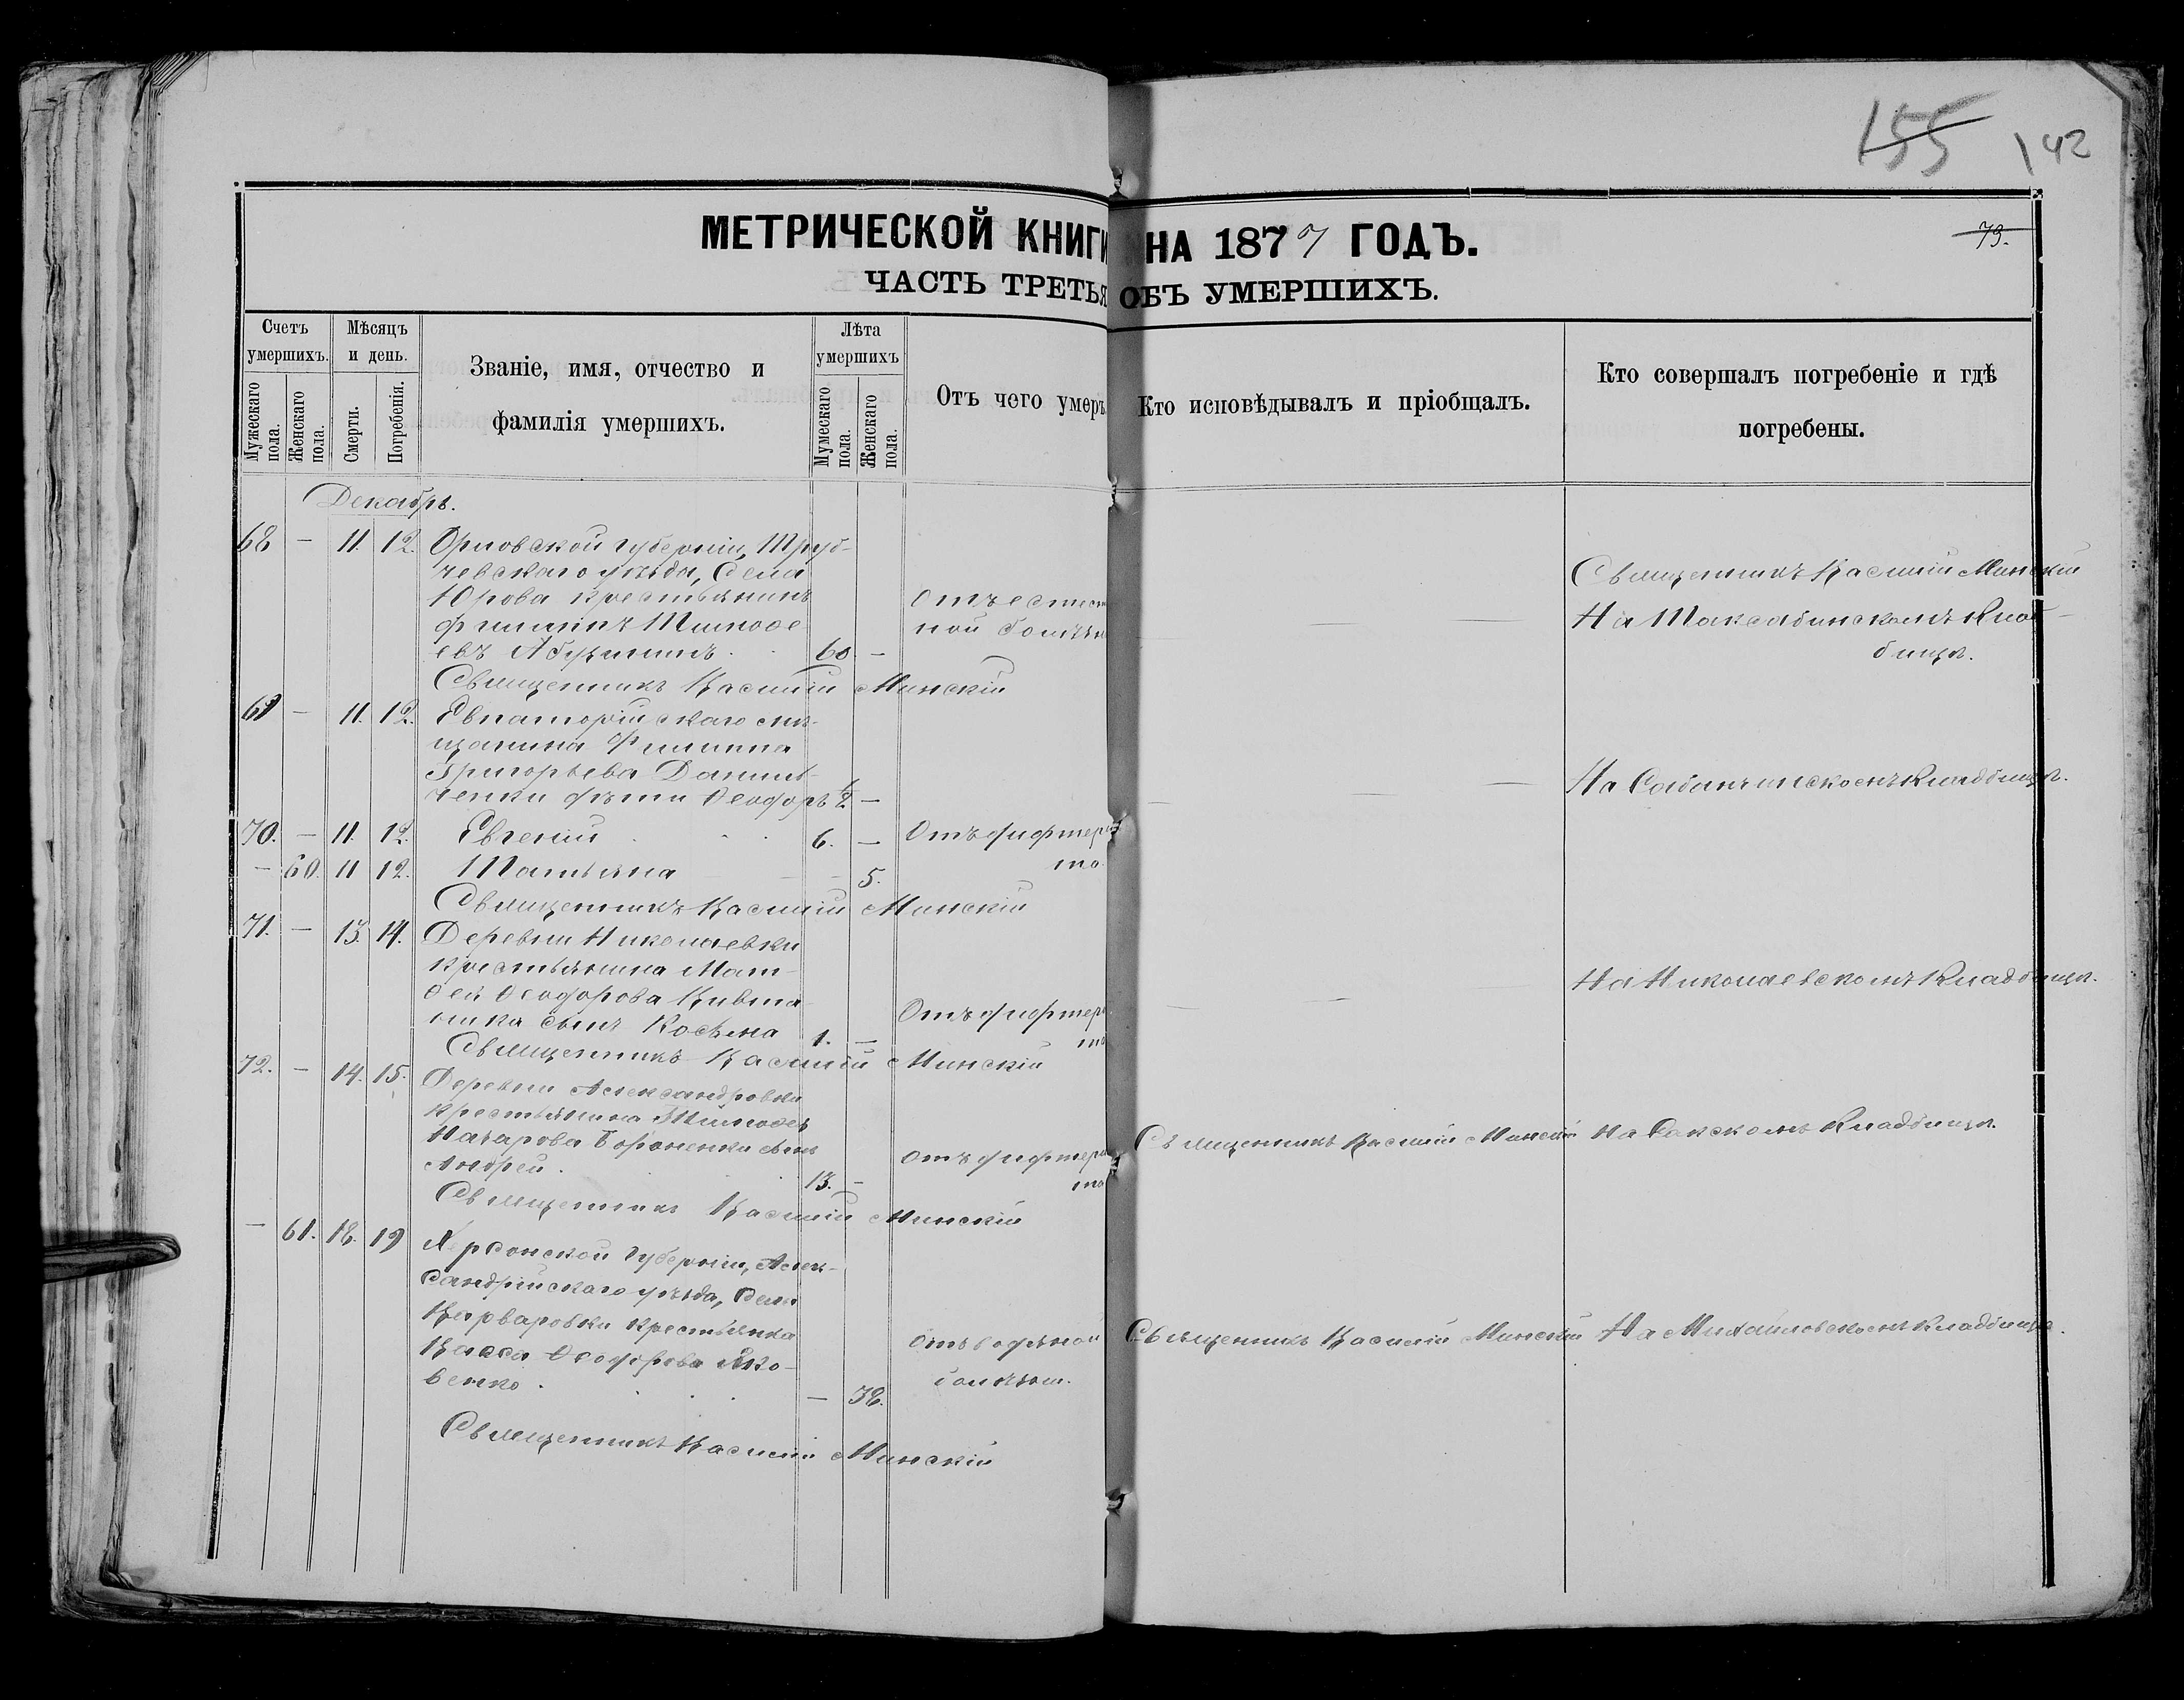 155 142
МЕТРИЧЕСКОЙ КНИГИ НА 1877 ГОДЪ.
73.
ЧАСТЬ ТРЕТЬЯ ОБЪ УМЕРШИХЪ.
Счетъ умершихъ.
Мужескаго пола.
Женскаго пола.
Мѣсяцъ и день.
Смерти.
Погребенія.
Званіе, имя, отчество и
фамилія умершихъ.
Лѣта умершихъ
Мумескаго пола.
Женскаго пола.
Отъ чего умеръ.
Кто исповѣдывалъ и пріобщалъ.
Кто совершалъ погребеніе и гдѣ
погребены.
Декабрь.
68 — 11. 12. Орловской губерніи, Труб-
чевскаго уѣзда, Села
Юрова крестьянинъ
Филиппъ Тимофе
евъ 60 —
Отъ естест
ной болѣзн
Священникъ Василій Минскій
На клад-
бищѣ.
Священникъ Василій Минскій
69 — 11. 12. Евпаторійскаго мѣ-
щанина Филиппа
Григорьева Данил-
ченки дѣти Ѳеодоръ ½ —
На кладбищѣ.
70. — 11. 12. Евгеній 6. — Отъ дифтери
та
— 60. 11 12. Татьяна — 5.
Священникъ Василій Минскій
71. — 13. 14. Деревни Николаевки
крестьянина Мат-
ѳея Ѳеодорова
сынъ Косьма 1. —
Отъ дифтери
та
На Николаевскомъ кладбищѣ.
Священникъ Василій Минскій
72. — 14. 15. Деревни Александровки
крестьянина Тимофея
Назарова Бороненки сынъ
Андрей. 13. —
отъ дифтери
та
Священникъ Василій Минскій На Сакскомъ кладбищѣ.
Священникъ Василій Минскій
— 61. 18. 19 Херсонской губерніи, Алек-
сандрійскаго уѣзда, Села
Варваровки крестьянка
Васса Ѳеодорова Яко-
венко. — 38.
Отъ водяной
болѣзни.
Священникъ Василій Минскій На Михайловскомъ кладбищѣ.
Священникъ Василій Минскій